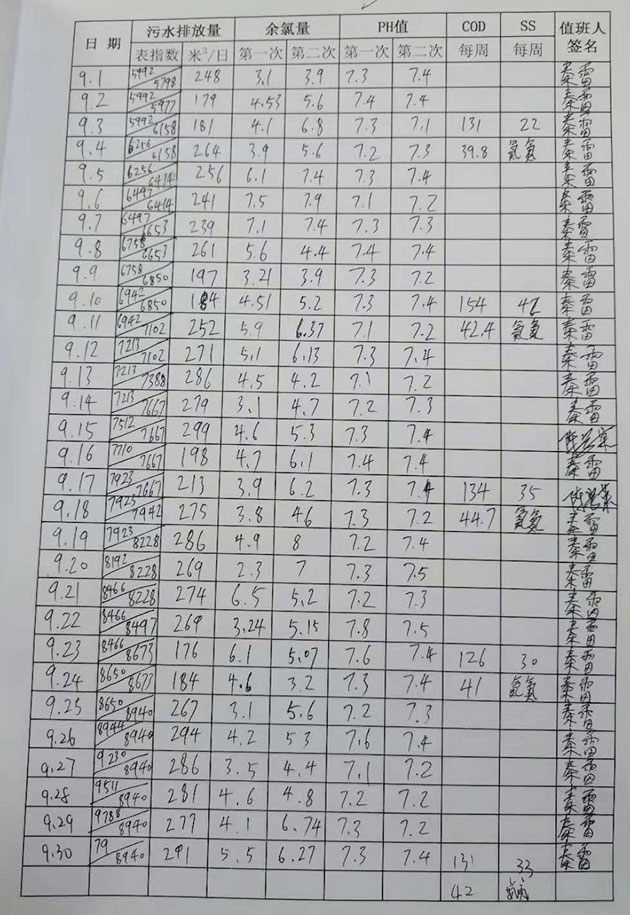 日 期 污水排放量 余氯量 PH值 COD SS 值班人签名
表指数 米³/日 第一次 第二次 第一次 第二次 每周 每周
9.1 5992/5798 248 3.1 3.9 7.3 7.4 秦雷
9.2 5992/5977 179 4.53 5.6 7.4 7.4 秦雷
9.3 5992/6158 181 4.1 6.8 7.3 7.1 131 22 秦雷
9.4 6256/6158 264 3.9 5.6 7.2 7.3 39.8 氨氮 秦雷
9.5 6256/6414 256 6.1 7.4 7.3 7.4 秦雷
9.6 6492/6414 241 7.5 7.9 7.1 7.2 秦雷
9.7 6497/6653 239 7.1 7.4 7.3 7.3 秦雷
9.8 6758/6653 261 5.6 4.4 7.4 7.4 秦雷
9.9 6758/6850 197 3.21 3.9 7.3 7.2 秦雷
9.10 6942/6850 184 4.51 5.2 7.3 7.4 154 42 秦雷
9.11 6942/7102 252 5.9 6.37 7.1 7.2 42.4 氨氮 秦雷
9.12 7213/7102 271 5.1 6.13 7.3 7.4 秦雷
9.13 7213/7388 286 4.5 4.2 7.1 7.2 秦雷
9.14 7213/7667 279 3.1 4.7 7.2 7.3 秦雷
9.15 7512/7667 299 4.6 5.3 7.3 7.4
9.16 7710/7667 198 4.7 6.1 7.4 7.4 秦雷
9.17 7923/7667 213 3.9 6.2 7.3 7.4 134 35
9.18 7923/7942 275 3.8 46 7.3 7.2 44.7 氨氮 秦雷
9.19 7923/8228 286 4.9 8 7.2 7.4 秦雷
9.20 8192/8228 269 2.3 7 7.3 7.5 秦雷
9.21 8466/8228 274 6.5 5.2 7.2 7.3 秦雷
9.22 8466/8497 269 3.24 5.15 7.8 7.5 秦雷
9.23 8466/8673 176 6.1 5.07 7.6 7.4 126 30 秦雷
9.24 8650/8673 184 4.6 3.2 7.3 7.4 41 氨氮 秦雷
9.25 8650/8940 267 3.1 5.6 7.2 7.3 秦雷
9.26 8944/8940 294 4.2 53 7.6 7.4 秦雷
9.27 9230/8940 286 3.5 4.4 7.1 7.2 秦雷
9.28 9511/8940 281 4.6 4.8 7.2 7.2 秦雷
9.29 9788/8940 277 4.1 6.74 7.3 7.2 秦雷
9.30 79/8940 291 5.5 6.27 7.3 7.4 131 33 秦雷
42 氨氮